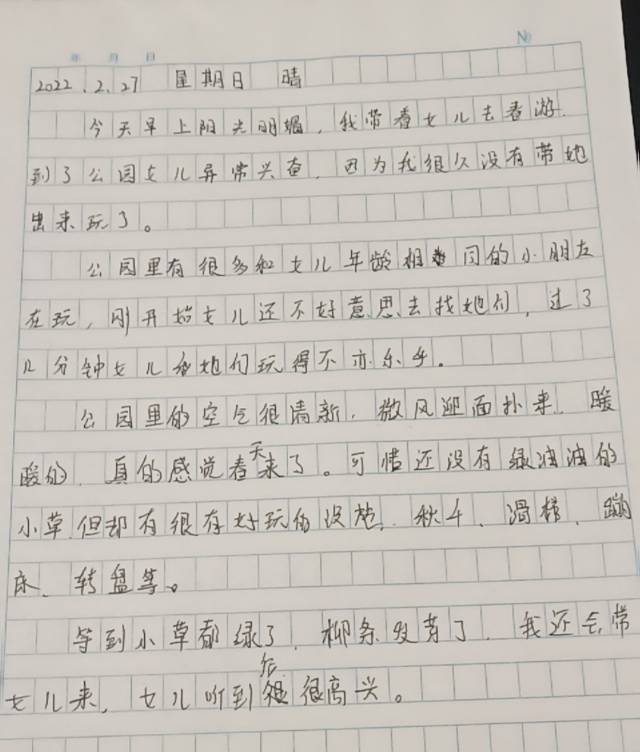 年 月 日 №
2022.2.27 星期日 晴
今天早上阳光明媚,我带着女儿去春游.
到了公园女儿异常兴奋,因为我很久没有带她
出来玩了。
公园里有很多和女儿年龄相同的小朋友
在玩,刚开始女儿还不好意思去找她们,过了
几分钟女儿和她们玩得不亦乐乎.
公园里的空气很清新.微风迎面扑来、暖
暖的、真的感觉春天来了。可惜还没有绿油油的
小草但却有很有好玩的设施、秋千、滑梯、蹦
床、转盘等。
等到小草都绿了、柳条发芽了、我还会带
女儿来,女儿听到后很高兴。